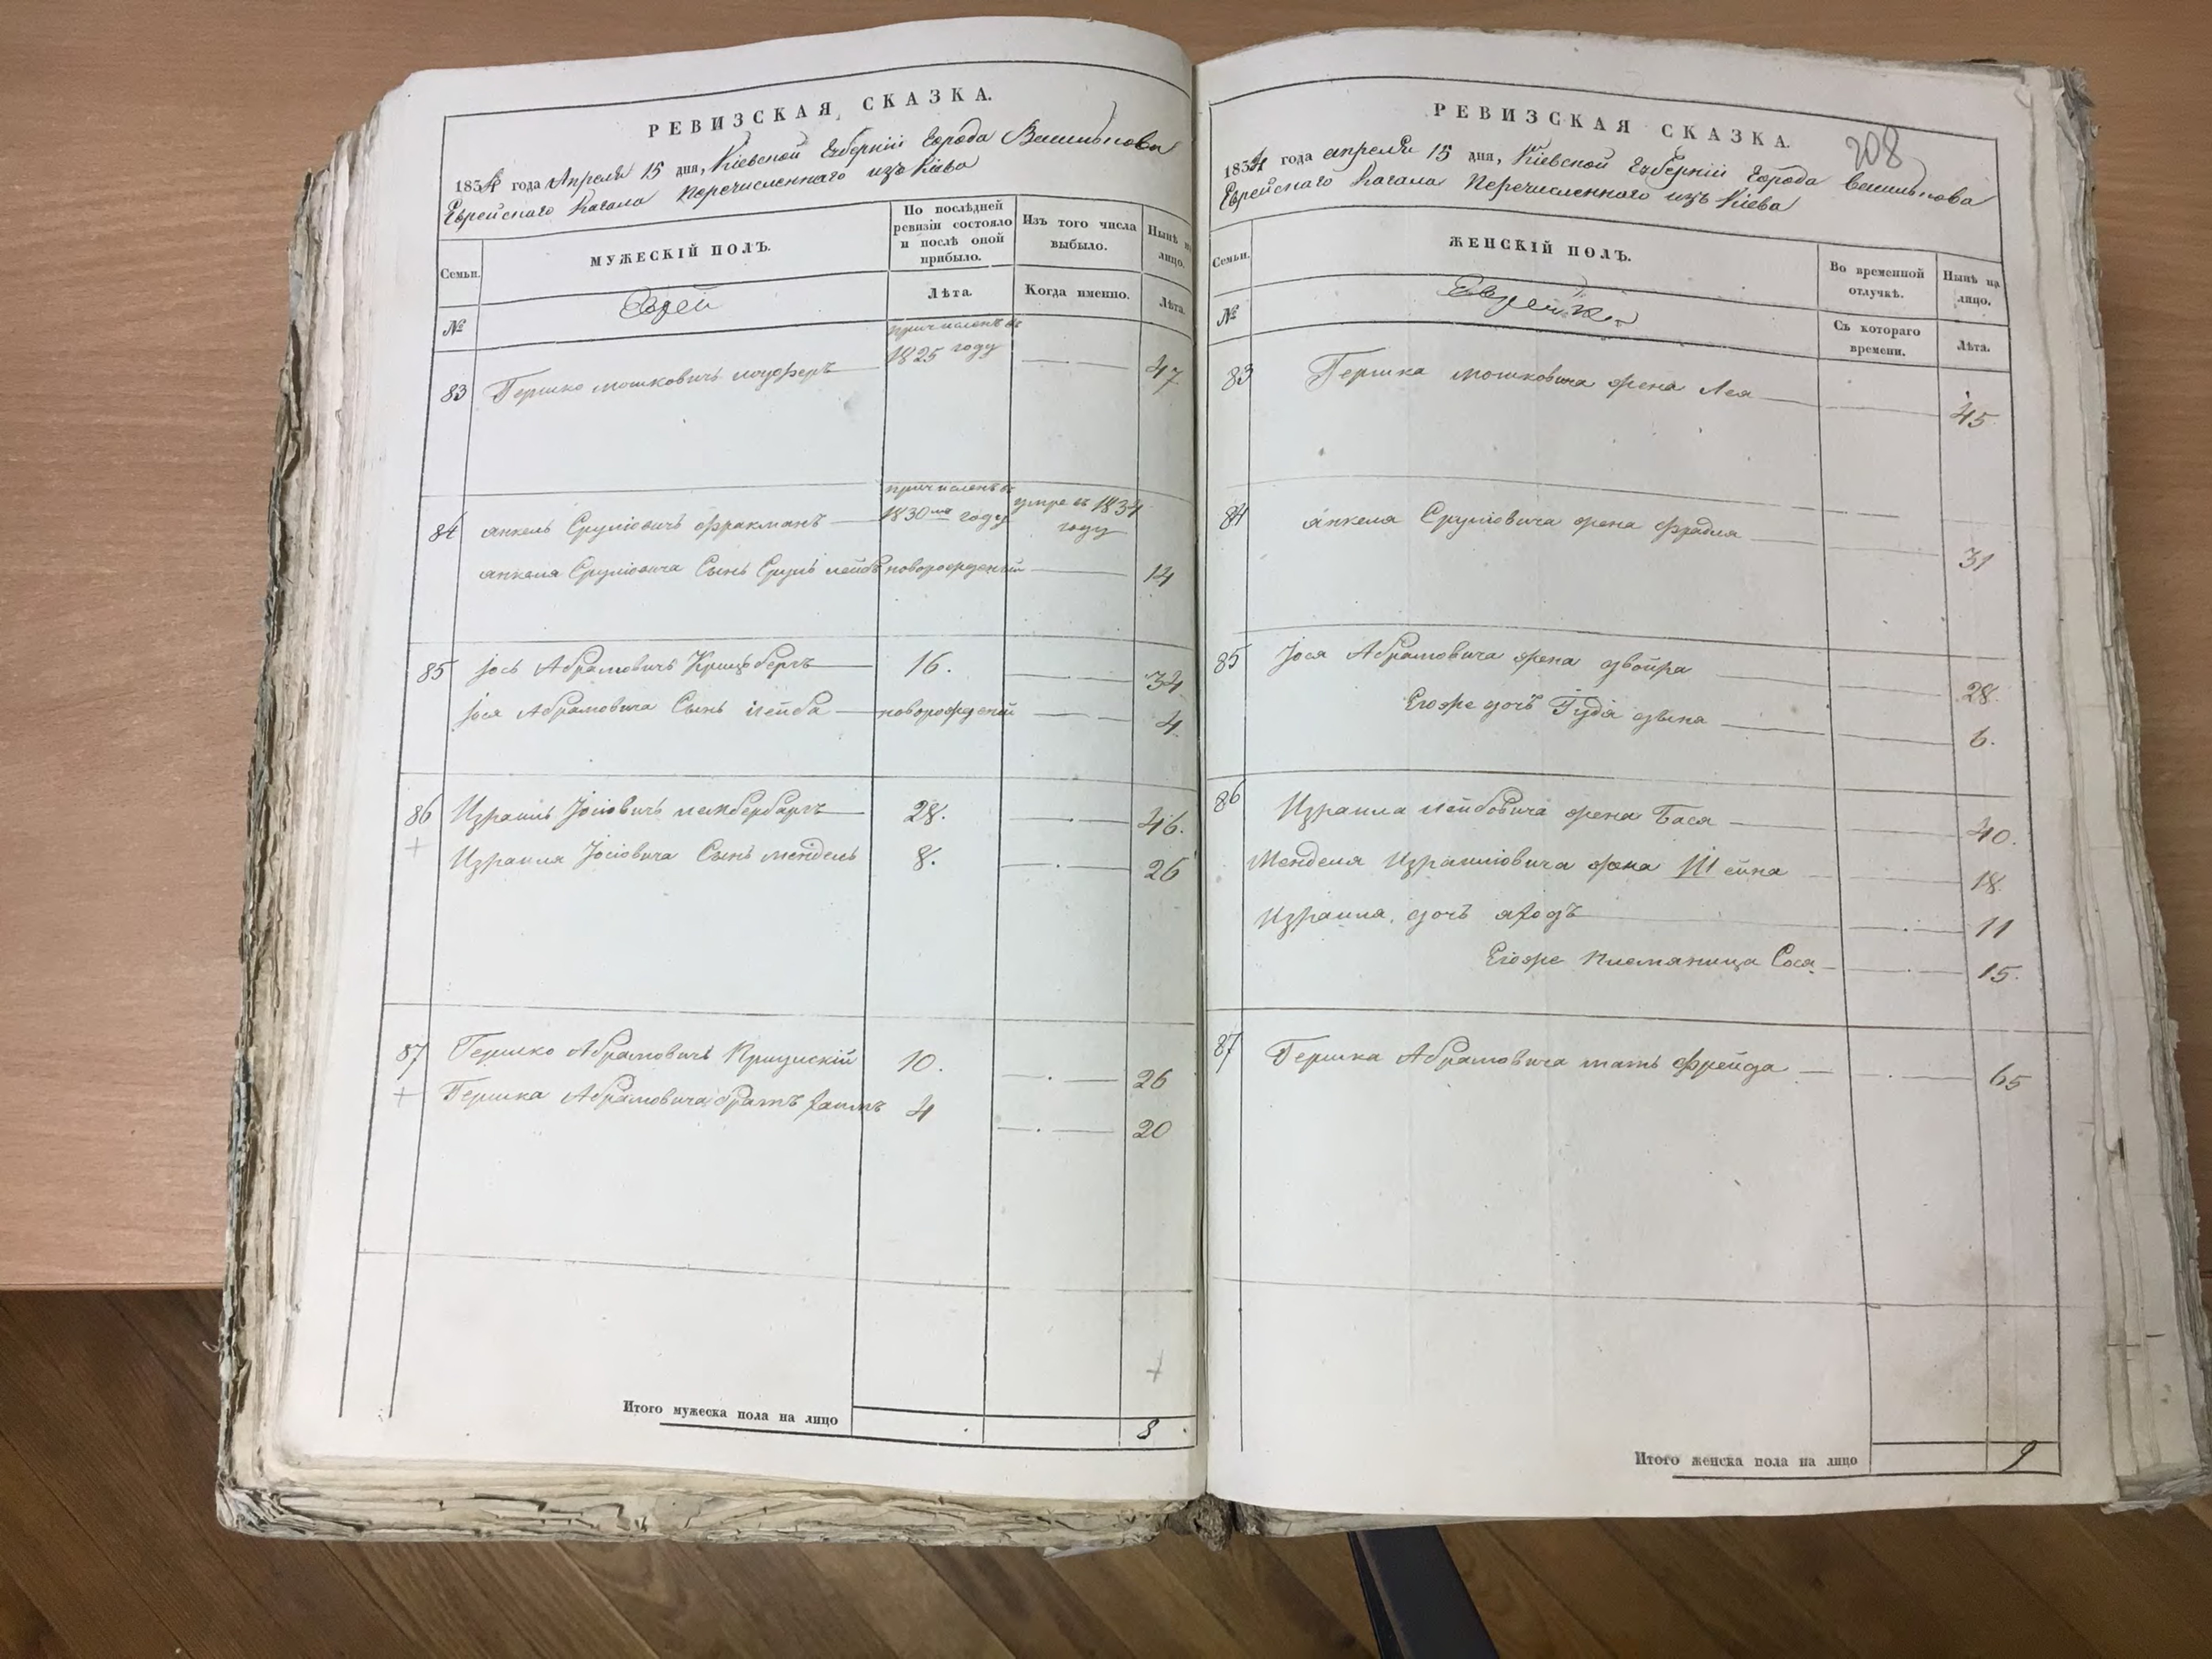 РЕВИЗСКАЯ СКАЗКА.
1834 года Апреля 15 дня, Кіевской Губерніи Города Василькова
Еврейскаго Кагала перечисленнаго изъ Кіева
Семьи.
МУЖЕСКІЙ ПОЛЪ.
По послѣдней ревизіи состояло и послѣ оной прибыло.
Изъ того числа выбыло.
Нынѣ на лицо.
№
Еврей
Лѣта.
Когда именно.
Лѣта.
83 Гершко Мошковичъ причисленъ въ 1825 году 47
84 Янкель Сруліовичъ Фракманъ причисленъ въ 1830мъ году умре въ 1834 году
Янкеля Сруліовича Сынъ Срулъ Лейбъ новорожденый 14
85 Іось Абрамовичъ Крицбергъ 16. 34
Іося Абрамовича Сынъ Лейба новорожденый 4
86 Израиль Іосіовичъ 28. 46.
Израиля Іосіовича Сынъ Мендель 8. 26
87 Гершко Абрамовичъ 10. 26
Гершка Абрамовича братъ Хаимъ 4 20
Итого мужеска пола на лицо 8
РЕВИЗСКАЯ СКАЗКА.
208
1834 года апреля 15 дня, Кіевской Губерніи Города Василькова
Еврейскаго Кагала перечисленнаго изъ Кіева
Семьи.
ЖЕНСКІЙ ПОЛЪ.
Во временной отлучкѣ.
Нынѣ на лицо.
№
Еврейки
Съ котораго времени.
Лѣта.
83 Гершка Мошковича жена Лея 45
84 Янкеля Сруліовича жена Фрадля 31
85 Іося Абрамовича жена Двойра 28.
Егоже дочь Гудя Двына 6.
86 Израила Лейбовича жена Бася 40.
Менделя Израиліовича жена Шейна 18.
Израиля дочъ 11
Егоже племяница Сося 15.
87 Гершка Абрамовича мать Фрейда 65
Итого женска пола на лицо 9